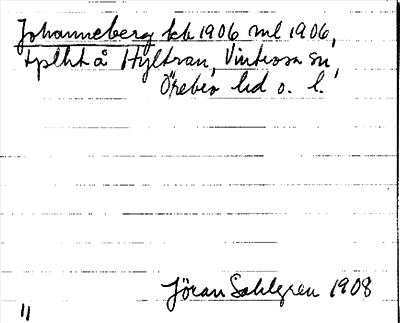 Johanneberg kb 1906 ml 1906,
tplht å Hyltran, Vintrosa sn,
Örebro hd o. l.
Jöran Sahlgren 1908
11